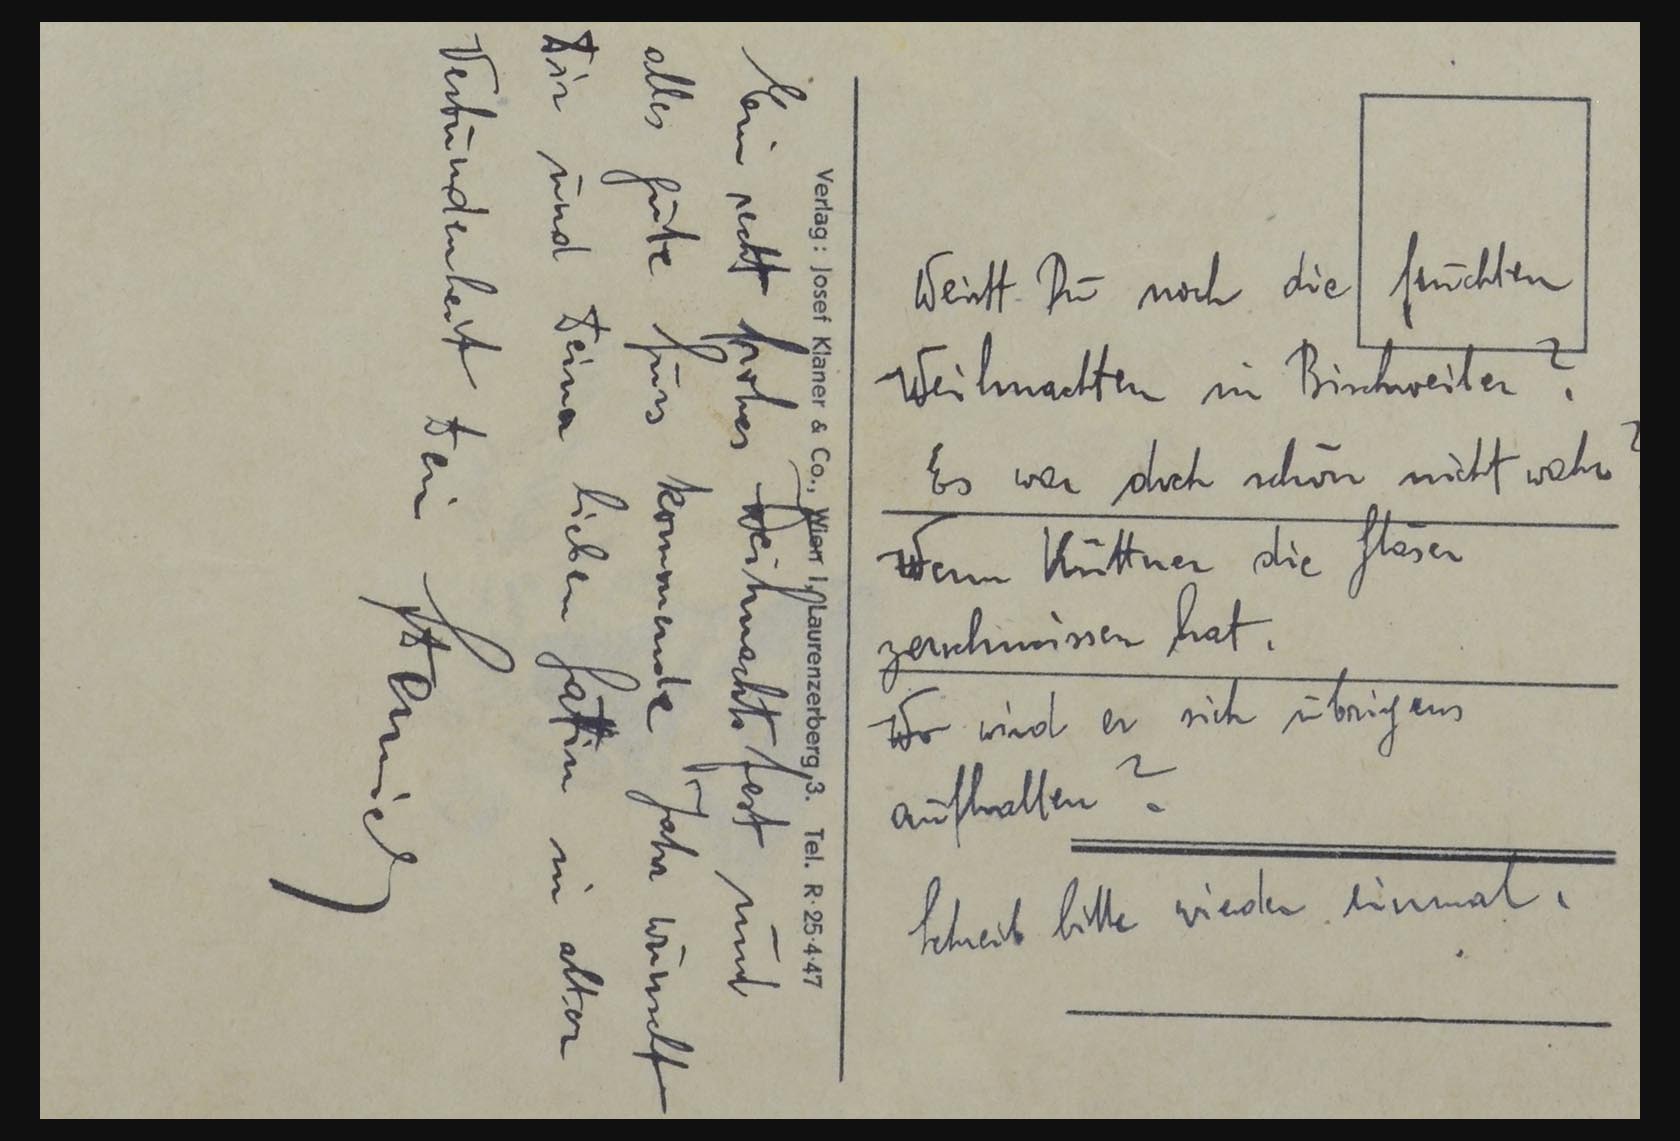 Ein recht frohes Weihnachtsfest und
alles gute fürs kommende Jahr wünscht
Dir und Deiner lieben Gattin in alter
Verbundenheit Dein
Verlag: Josef Klaner & Co., Wien I, Laurenzerberg 3. Tel. R·25·4·47
Weißt Du noch die feuchten
Weihnachten in Bischweiler?
Es war doch schön nicht wahr?
Wenn Küttner die Gläser
zerschmissen hat.
Wo wird er sich übrigens
aufhalten?
Schreib bitte wieder einmal.